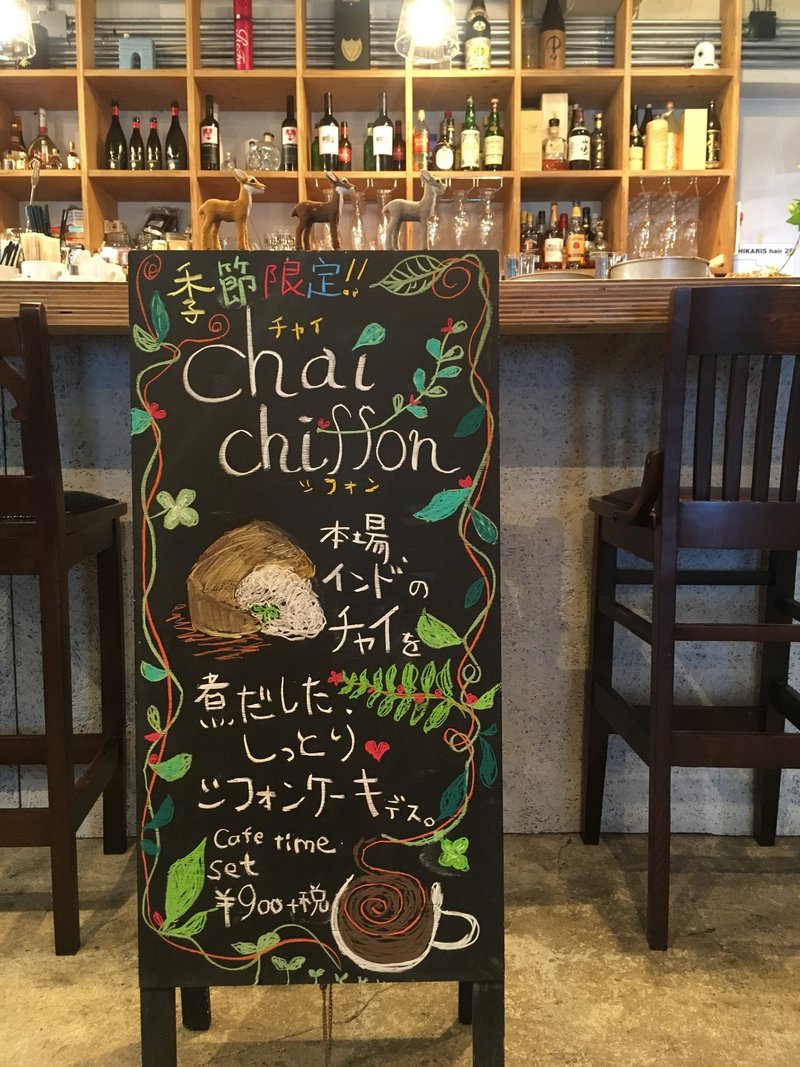 季節限定!!
チャイ
chai
chiffon
シフォン
本場、
インドの
チャイを
煮だした、
しっとり
シフォンケーキデス。
Cafe time
set
¥900+税
HIKARIS hair